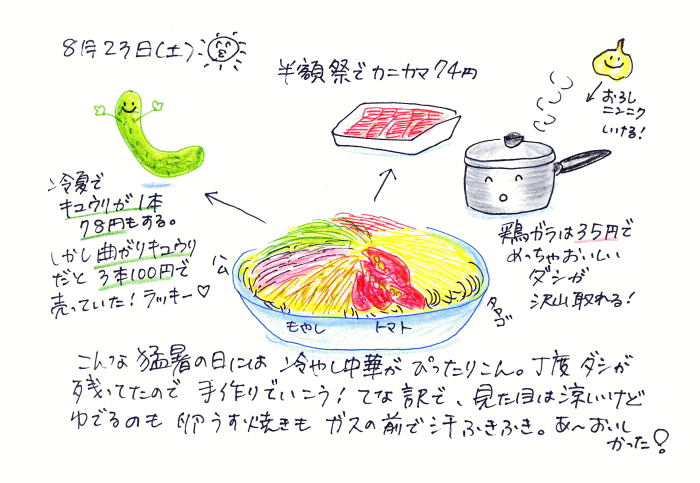 8月23日(土)
半額祭でカニカマ74円
おろし
ニンニク
いける!
冷夏で
キュウリが1本
78円もする。
しかし曲がりキュウリ
だと3本100円で
売っていた!ラッキー♡
鶏ガラは35円で
めっちゃおいしい
ダシが
沢山取れる!
ハム
もやし
トマト
タマゴ
こんな猛暑の日には冷やし中華がぴったりこん。丁度ダシが
残ってたので手作りでいこう!てな訳で、見た目は涼しいけど
ゆでるのも卵うす焼きもガスの前で汗ふきふき。あ〜おいし
かった!